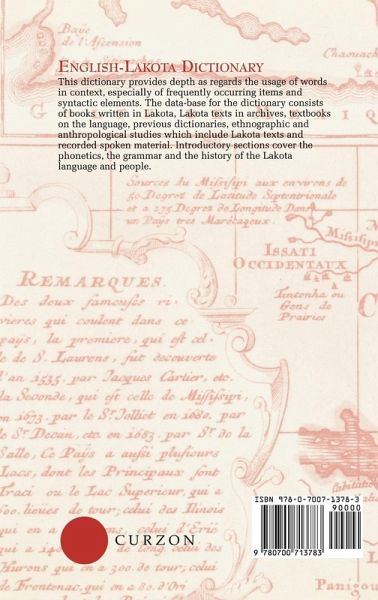 Baye de l'Ascension
Chaouach
ENGLISH-LAKOTA DICTIONARY
This dictionary provides depth as regards the usage of words
in context, especially of frequently occurring items and
syntactic elements. The data-base for the dictionary consists
of books written in Lakota, Lakota texts in archives, textbooks
on the language, previous dictionaries, ethnographic and
anthropological studies which include Lakota texts and
recorded spoken material. Introductory sections cover the
phonetics, the grammar and the history of the Lakota
language and people.
Sources du Missisipi aux environs de
50 Degrez de Latitude Septentrionale
et a 275 Degrez de Longitude Dans
un Pays tres Marécageux.
Missisipi
ISSATI
OCCIDENTAUX
Tintonha ou
Gens de
Prairies
REMARQUES.
Des deux fameuses ri
vieres qui coulent dans ce
pays, la premiere, qui est cel
le de S. Laurens, fut decouverte
d'an 1535. par Jacques Cartier, etc.
la Seconde, qui est celle de Missisipi,
en 1673. par le Sr. Jolliet en 1680. par
le Sr. Decan, etc. en 1683 par Sr. de la
Salle, Ce Pays a aussi plusieurs
Lacs, dont les Principaux sont
Traci ou le Lac Superieur, qui a
600. lieues de tour; celui des Ilinois
qui en a celui d'Erié
long celui des
Hurons qui en a 300. de tour; celui
de Frontenac, qui en a 80. d'Ori
CURZON
ISBN 978-0-7007-1378-3
90000
9 780700 713783